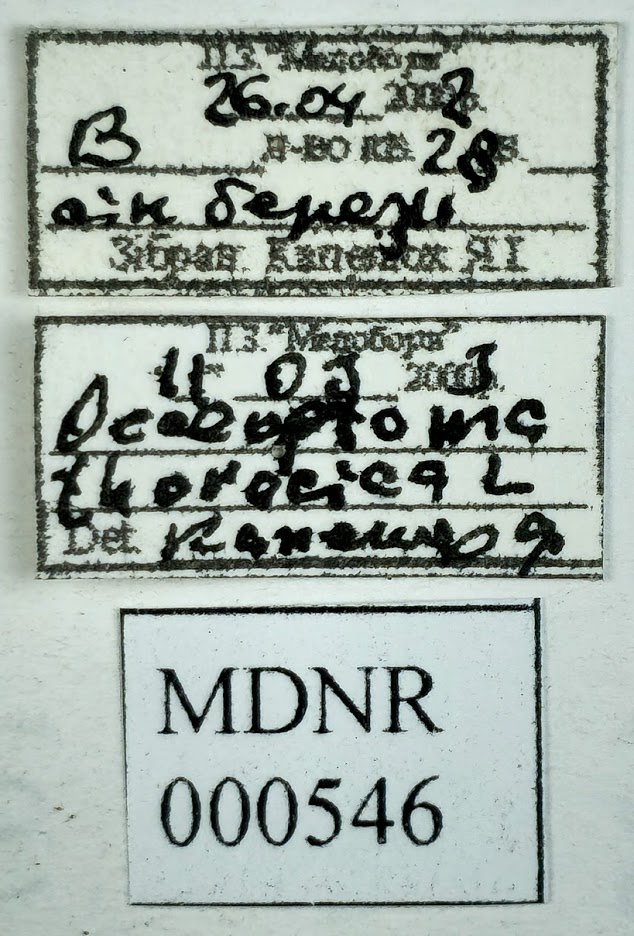 П.З. "Медобори"
26.04 2002р.
В в-во кв. 28 в.
сік берези
Зібрав. Капелюх Я.І
П.З. "Медобори"
11 03 2003р.
Oceoptoma
thoracica L
Det. Капелюх Я
MDNR
000546